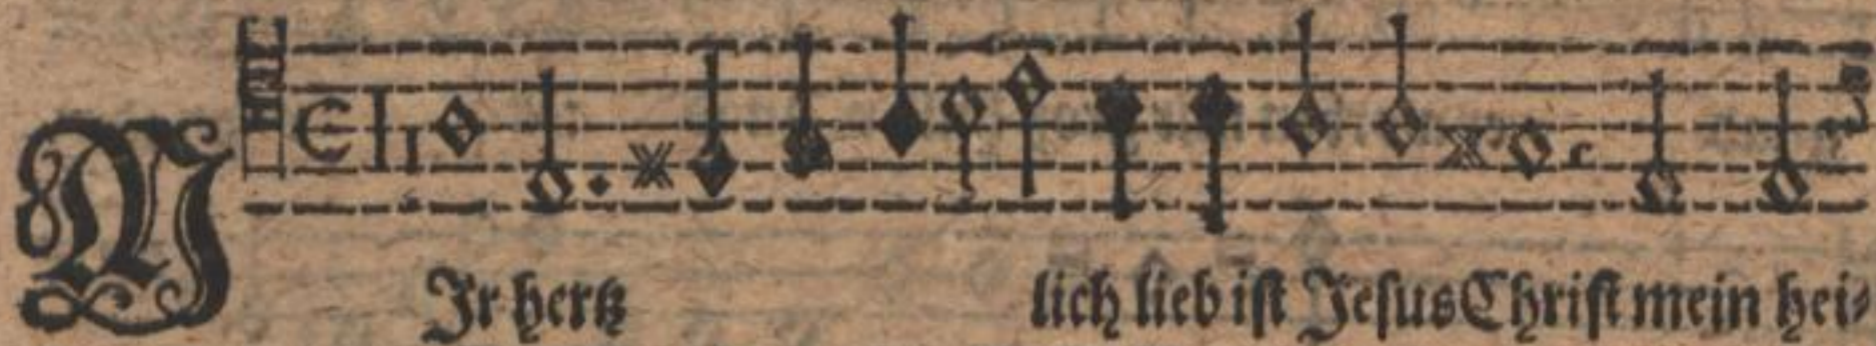 MIr hertz lich lieb ist Jesus Christ mein hei⸗